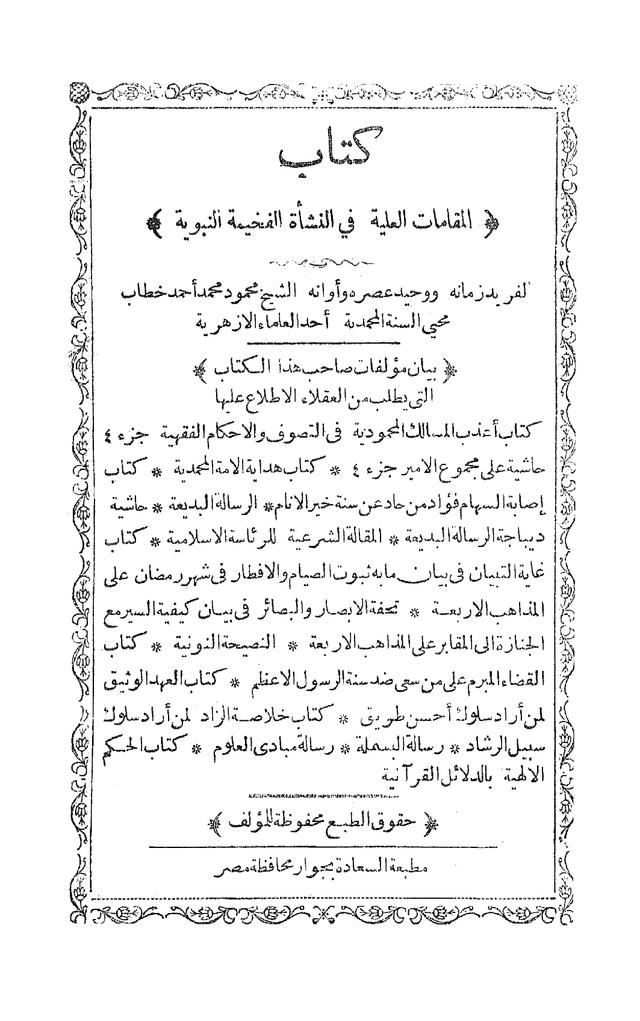 كتاب
﴿ المقامات العلية في النشأة الفخيمة النبوية ﴾
لفريد زمانه ووحيد عصره وأوانه الشيخ محمود محمد أحمد خطاب
محيى السنة المحمدية أحد العلماء الازهرية
﴿ بيان مؤلفات صاحب هذا الكتاب ﴾
التى يطلب من العقلاء الاطلاع عليها
كتاب أعذب المسالك المحمودية فى التصوف والاحكام الفقهية جزء ٤
حاشية على مجموع الامير جزء ٤ * كتاب هداية الامة المحمدية * كتاب
إصابة السهام فؤاد من حاد عن سنة خير الانام * الرسالة البديعة * حاشية
ديباجة الرسالة البديعة * المقالة الشرعية للرئاسة الاسلامية * كتاب
غاية التبيان فى بيان ما به ثبوت الصيام والافطار فى شهر رمضان على
المذاهب الاربعة * تحفة الابصار والبصائر فى بيان كيفية السير مع
الجنازة الى المقابر على المذاهب الاربعة * النصيحة النونية * كتاب
القضاء المبرم على من سعى ضد سنة الرسول الاعظم * كتاب العهد الوثيق
لمن أراد سلوك أحسن طريق * كتاب خلاصة الزاد لمن أراد سلوك
سبيل الرشاد * رسالة البسملة * رسالة مبادى العلوم * كتاب الحكم
الالهية بالدلائل القرآنية
﴿ حقوق الطبع محفوظة للمؤلف ﴾
مطبعة السعادة بجوار محافظة مصر